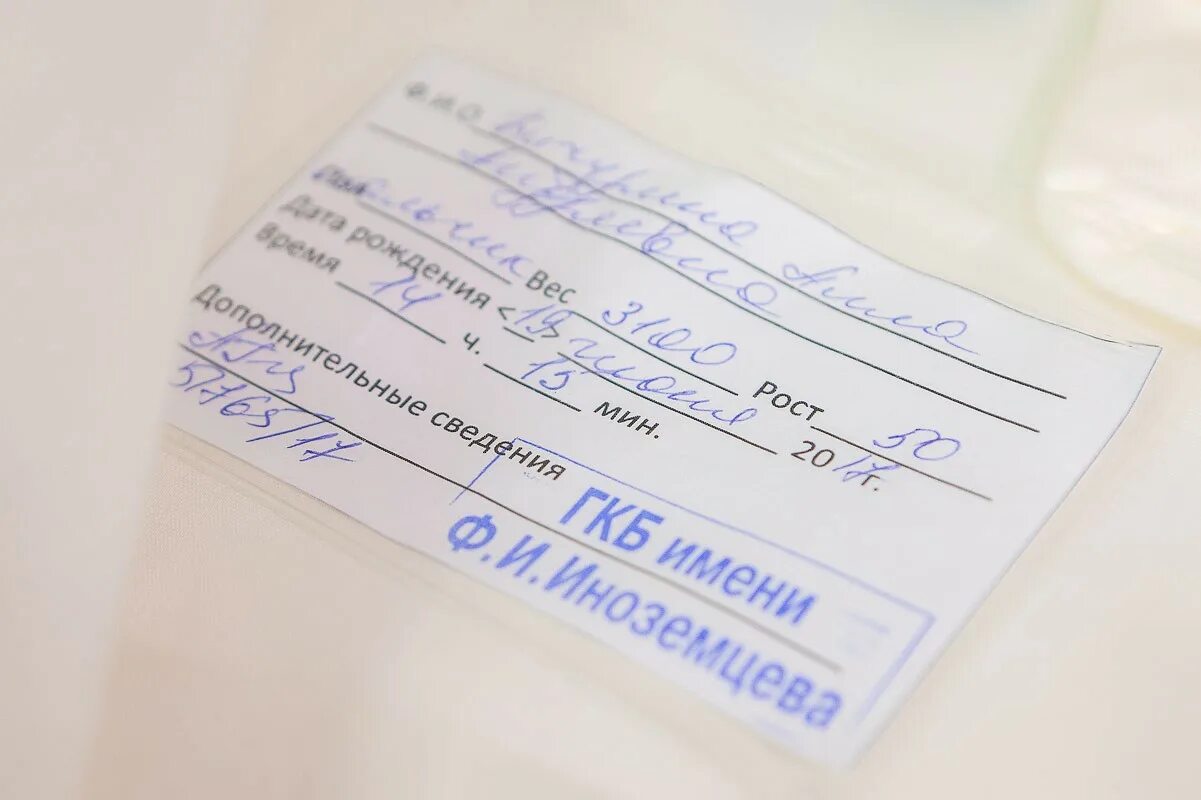 Ф.И.О. Кочурина Анна
Андреевна
Пол мальчик Вес 3100 Рост 50
Дата рождения <19> июня 2017 г.
Время 14 ч. 15 мин.
Дополнительные сведения
5/765/17
ГКБ имени
Ф.И.Иноземцева